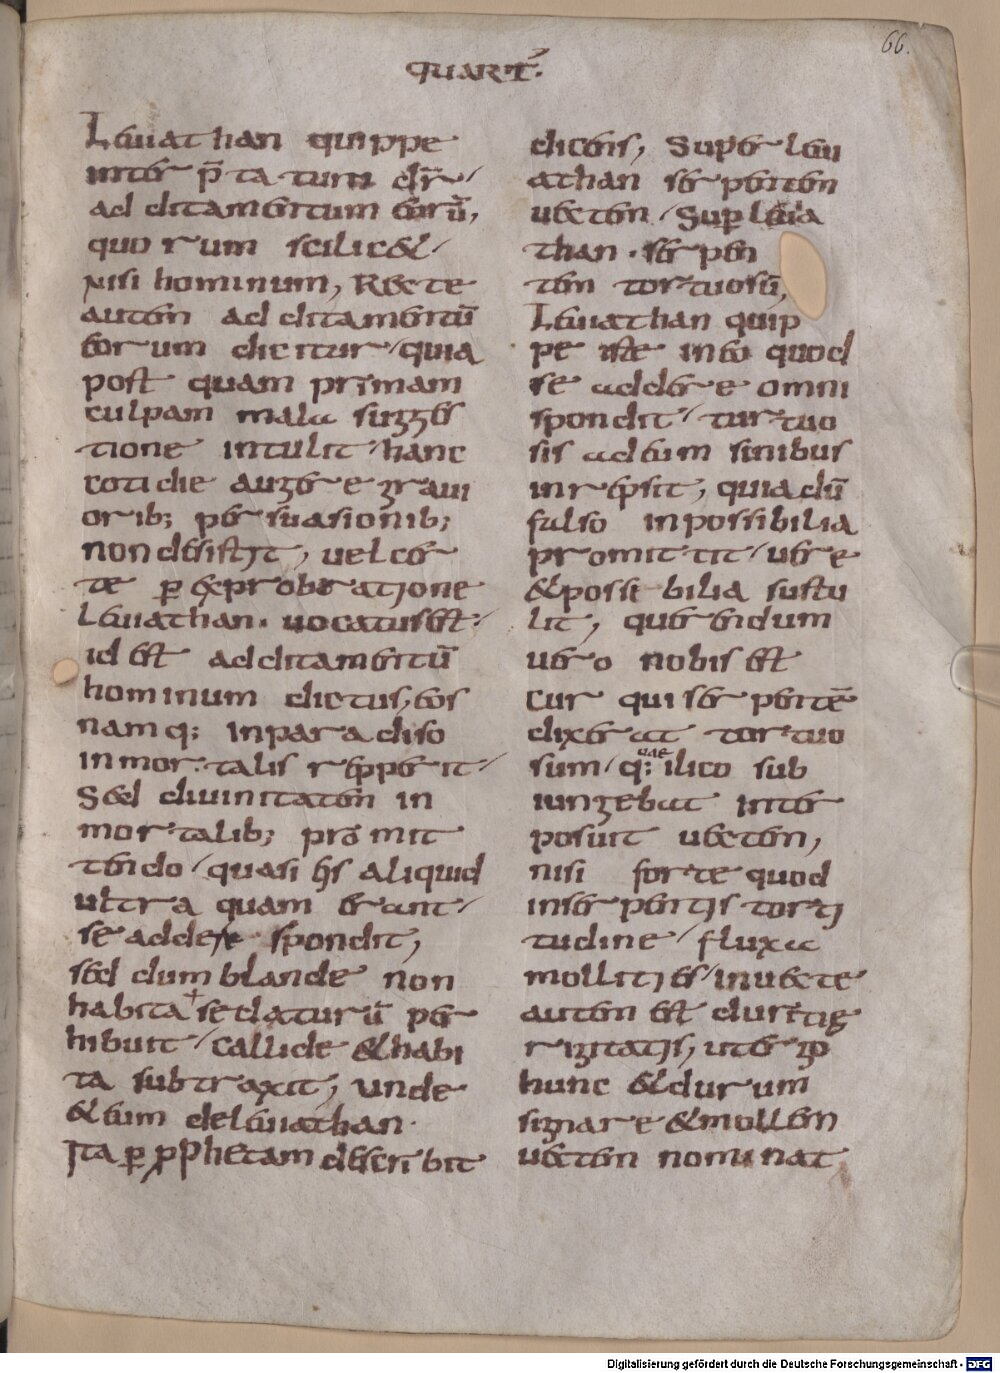 66.
QUART̄.
Leuiathan quippe
inter p̄ta tum dr̄
additamentum eorū,
quorum scilic&
Nisi hominum, Recte
autem additamentū
eorum dicitur quia
post quam primam
culpam mala sugges
tione intulit hanc
cotidie augere graui
orib; persuasionib;
non desistit, uel cer
te ꝑ exprobratione
Leuiathan. uocatus est
id est additamentū
hominum dictus, eos
namq; in paradiso
inmortalis repperit
Sed diuinitatem in
mortalib; promit
tendo quasi his aliquid
ultra quam erant
se addere spondit,
sed dum blande non
habita se daturū per
hibuit callide & habi
ta subtraxit, unde
& eum de leuiathan.
Ita ꝑ ꝓphetam describit
dicens, Super leui
athan serpentem
uectem Suꝑ leuia
than. serpen
tem tortuosū,
Leuiathan quip
pe iste in eo quod
se addere omni
spondit tortuo
sis ad eum sinibus
inrepsit, quia dū
falso inpossibilia
promittit uere
& possebilia sustu
lit, querendum
uero nobis est
cur qui serpentē
dixerat tortuo
sum q; ilico sub
quae
iungebat inter
posuit uectem,
nisi forte quod
in serpentis torti
tudine fluxa
mollities in uecte
autem est duritig
rigitatis, ut ergo
hunc & durum
signare & mollem
uectem nominat
Digitalisierung gefördert durch die Deutsche Forschungsgemeinschaft - DFG